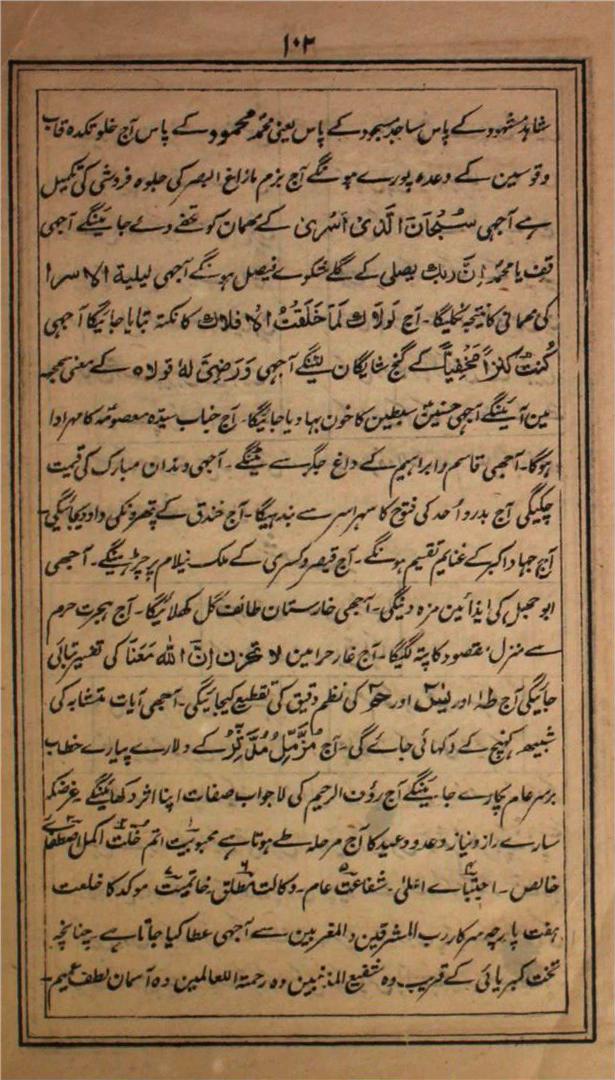 ۱۰۲
شاہد مشہود کے پاس ساجد مسجود کے پاس یعنی محمدؐ محمود کے پاس آج خلوتکدہ قاب
و قوسین کے وعدہ پورے ہونگے آج بزم مازاغ البصر کی جلوہ فروشی کی تکمیل
ہے آجہی سُبْحَانَ الَّذِیْ اَسْریٰ کے مہمان کو تحفے دے جائینگے آجہی
قف یا محمد اِنَّ ربك یصلی کے گلے شکوے فیصل ہونگے آجہی لیلیة الاسرا
کی مہمانی کا نتیجہ نکلیگا۔ آج لَولَاك لَمَا خَلَقْتُ الْاَفلاك کا نکتہ بتایا جائیگا آجہی
کُنتُ کَنزاً مَخْفِیاً کے گنج شایگان لٹینگے آجہی وَرَضِیَ لَهٗ قولاہ کے معنی سمجھ
مین آئینگے آجہی حسنین سبطین کا خون بہا دیا جائیگا۔ آج جناب سیدہ معصومہ کا مہر ادا
ہوگا۔ آجہی قاسم و ابراہیم کے داغ جگر سے مٹینگے۔ آجہی دندان مبارک کی قیمت
چکیگی آج بدر و اُحد کی فتوح کا سہرا سر سے بندہیگا۔ آج خندق کے پتھرونکی داد دیجائیگی۔
آج جہاد اکبر کے غنایم تقسیم ہونگے۔ آج قیصر و کسری کے ملک نیلام پر چڑہینگے۔ آجہی
ابوجہل کی ایذائین مزہ دینگی۔ آجہی خارستان طائف گل کھلائیگا۔ آج ہجرت حرم
سے منزل مقصود کا پتہ لگیگا۔ آج غار حرا مین لا تحزن اِنَّ اللّٰہ مَعَنَا کی تفسیر بتائی
جائیگی آج طہ اور یس اور حم کی نظم دقیق کی تقطیع کیجائیگی۔ آجہی آیات متشابہ کی
شبیہہ کھینچ کے دکہائی جائے گی۔ آج مُزَّمِّلُ مُدَّثِّرُ کے دلارے پیارے خطاب
برسر عام پکارے جائینگے آج رؤف الرحیم کی لاجواب صفات اپنا اثر دکھائینگے غرضکہ
سارے راز و نیاز وعد و وعید کا آج مرحلہ طے ہوتا ہے محبوبیت اتم خلت اکمل اصطفاے
خالص۔ اجتباے اعلیٰ۔ شفاعت عام۔ وکالت مطلق۔ خاتمیت موکد کا خلعت
ہفت پارچہ سرکار رب المشرقین و المغربین سے آجہی عطا کیا جاتا ہے چنانچہ
تخت کبریائی کے قریب۔ وہ شفیع المذنبین وہ رحمتہ اللعالمین وہ آسمان لطف عمیم۔